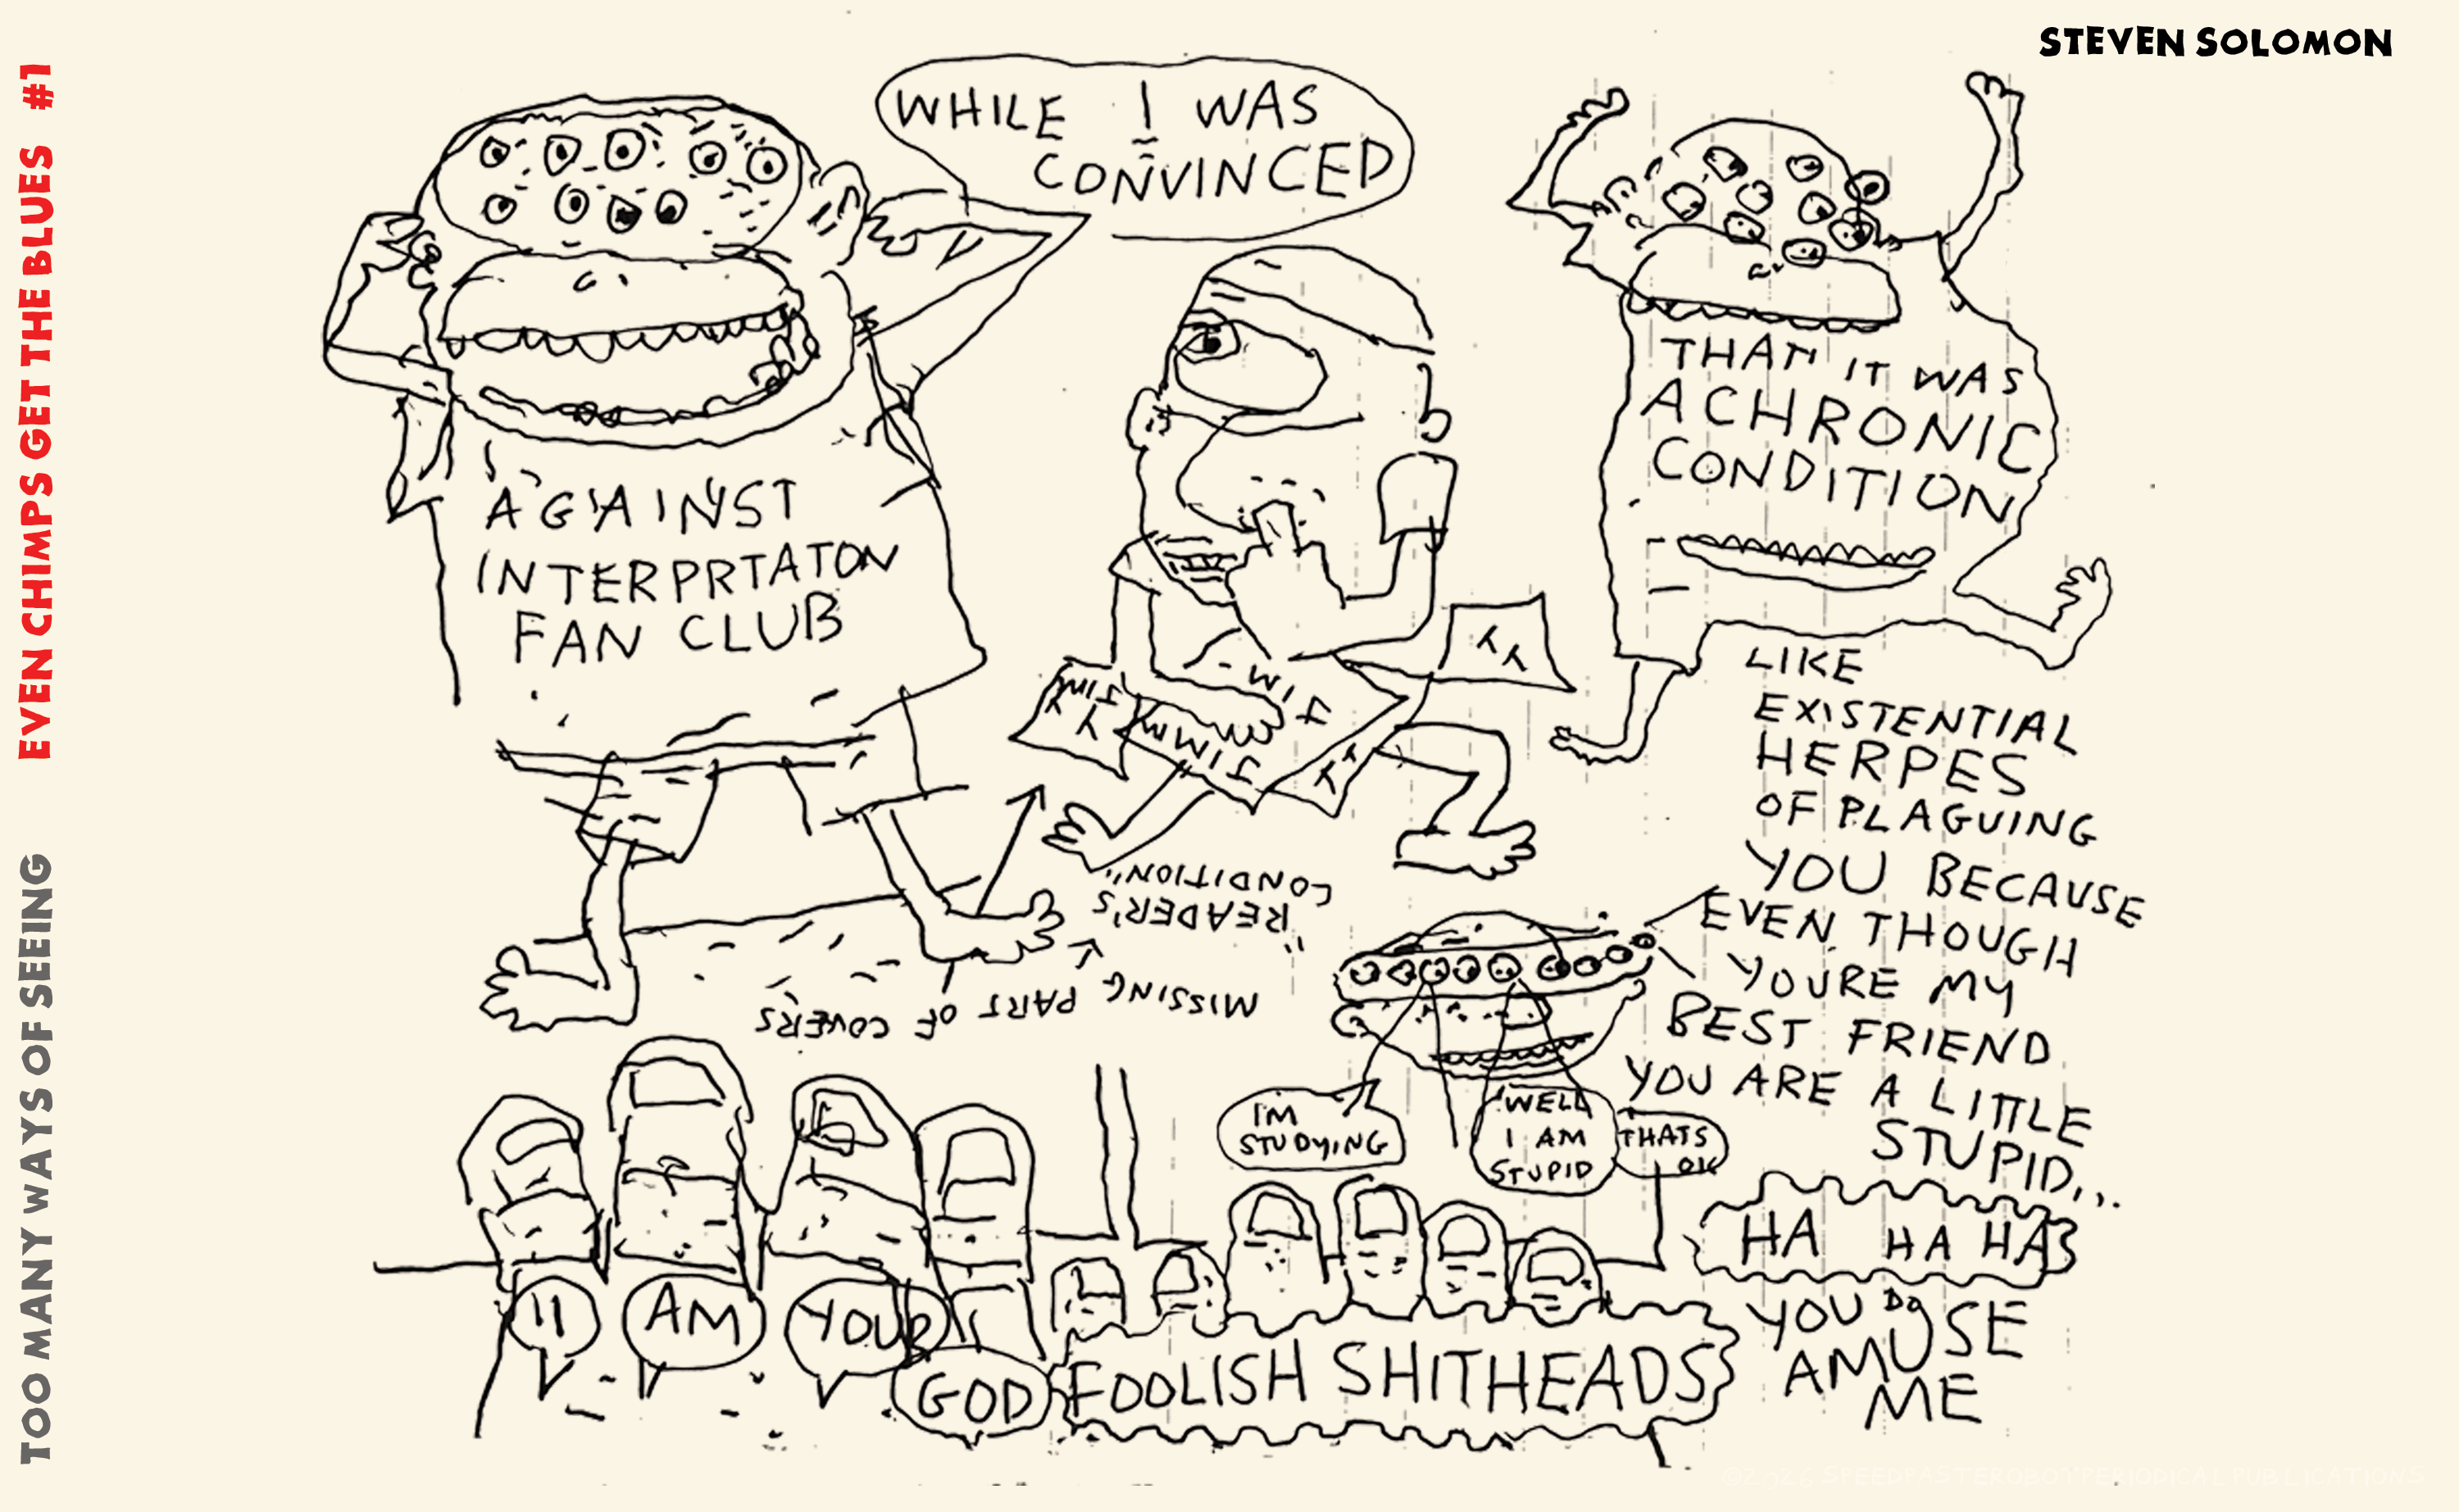 STEVEN SOLOMON
EVEN CHIMPS GET THE BLUES #1
TOO MANY WAYS OF SEEING
WHILE I WAS
CONVINCED
AGAINST
INTERPRTATON
FAN CLUB
THAT IT WAS
A CHRONIC
CONDITION
LIKE
EXISTENTIAL
HERPES
OF PLAGUING
YOU BECAUSE
EVEN THOUGH
YOURE MY
BEST FRIEND
YOU ARE A LITTLE
STUPID...
HA HA HA
YOU DO
AMUSE
ME
MISSING PART OF COVERS
"READER'S
CONDITION"
I'M
STUDYING
WELL
I AM
STUPID
THATS
OK
I
AM
YOUR
GOD
FOOLISH SHITHEADS